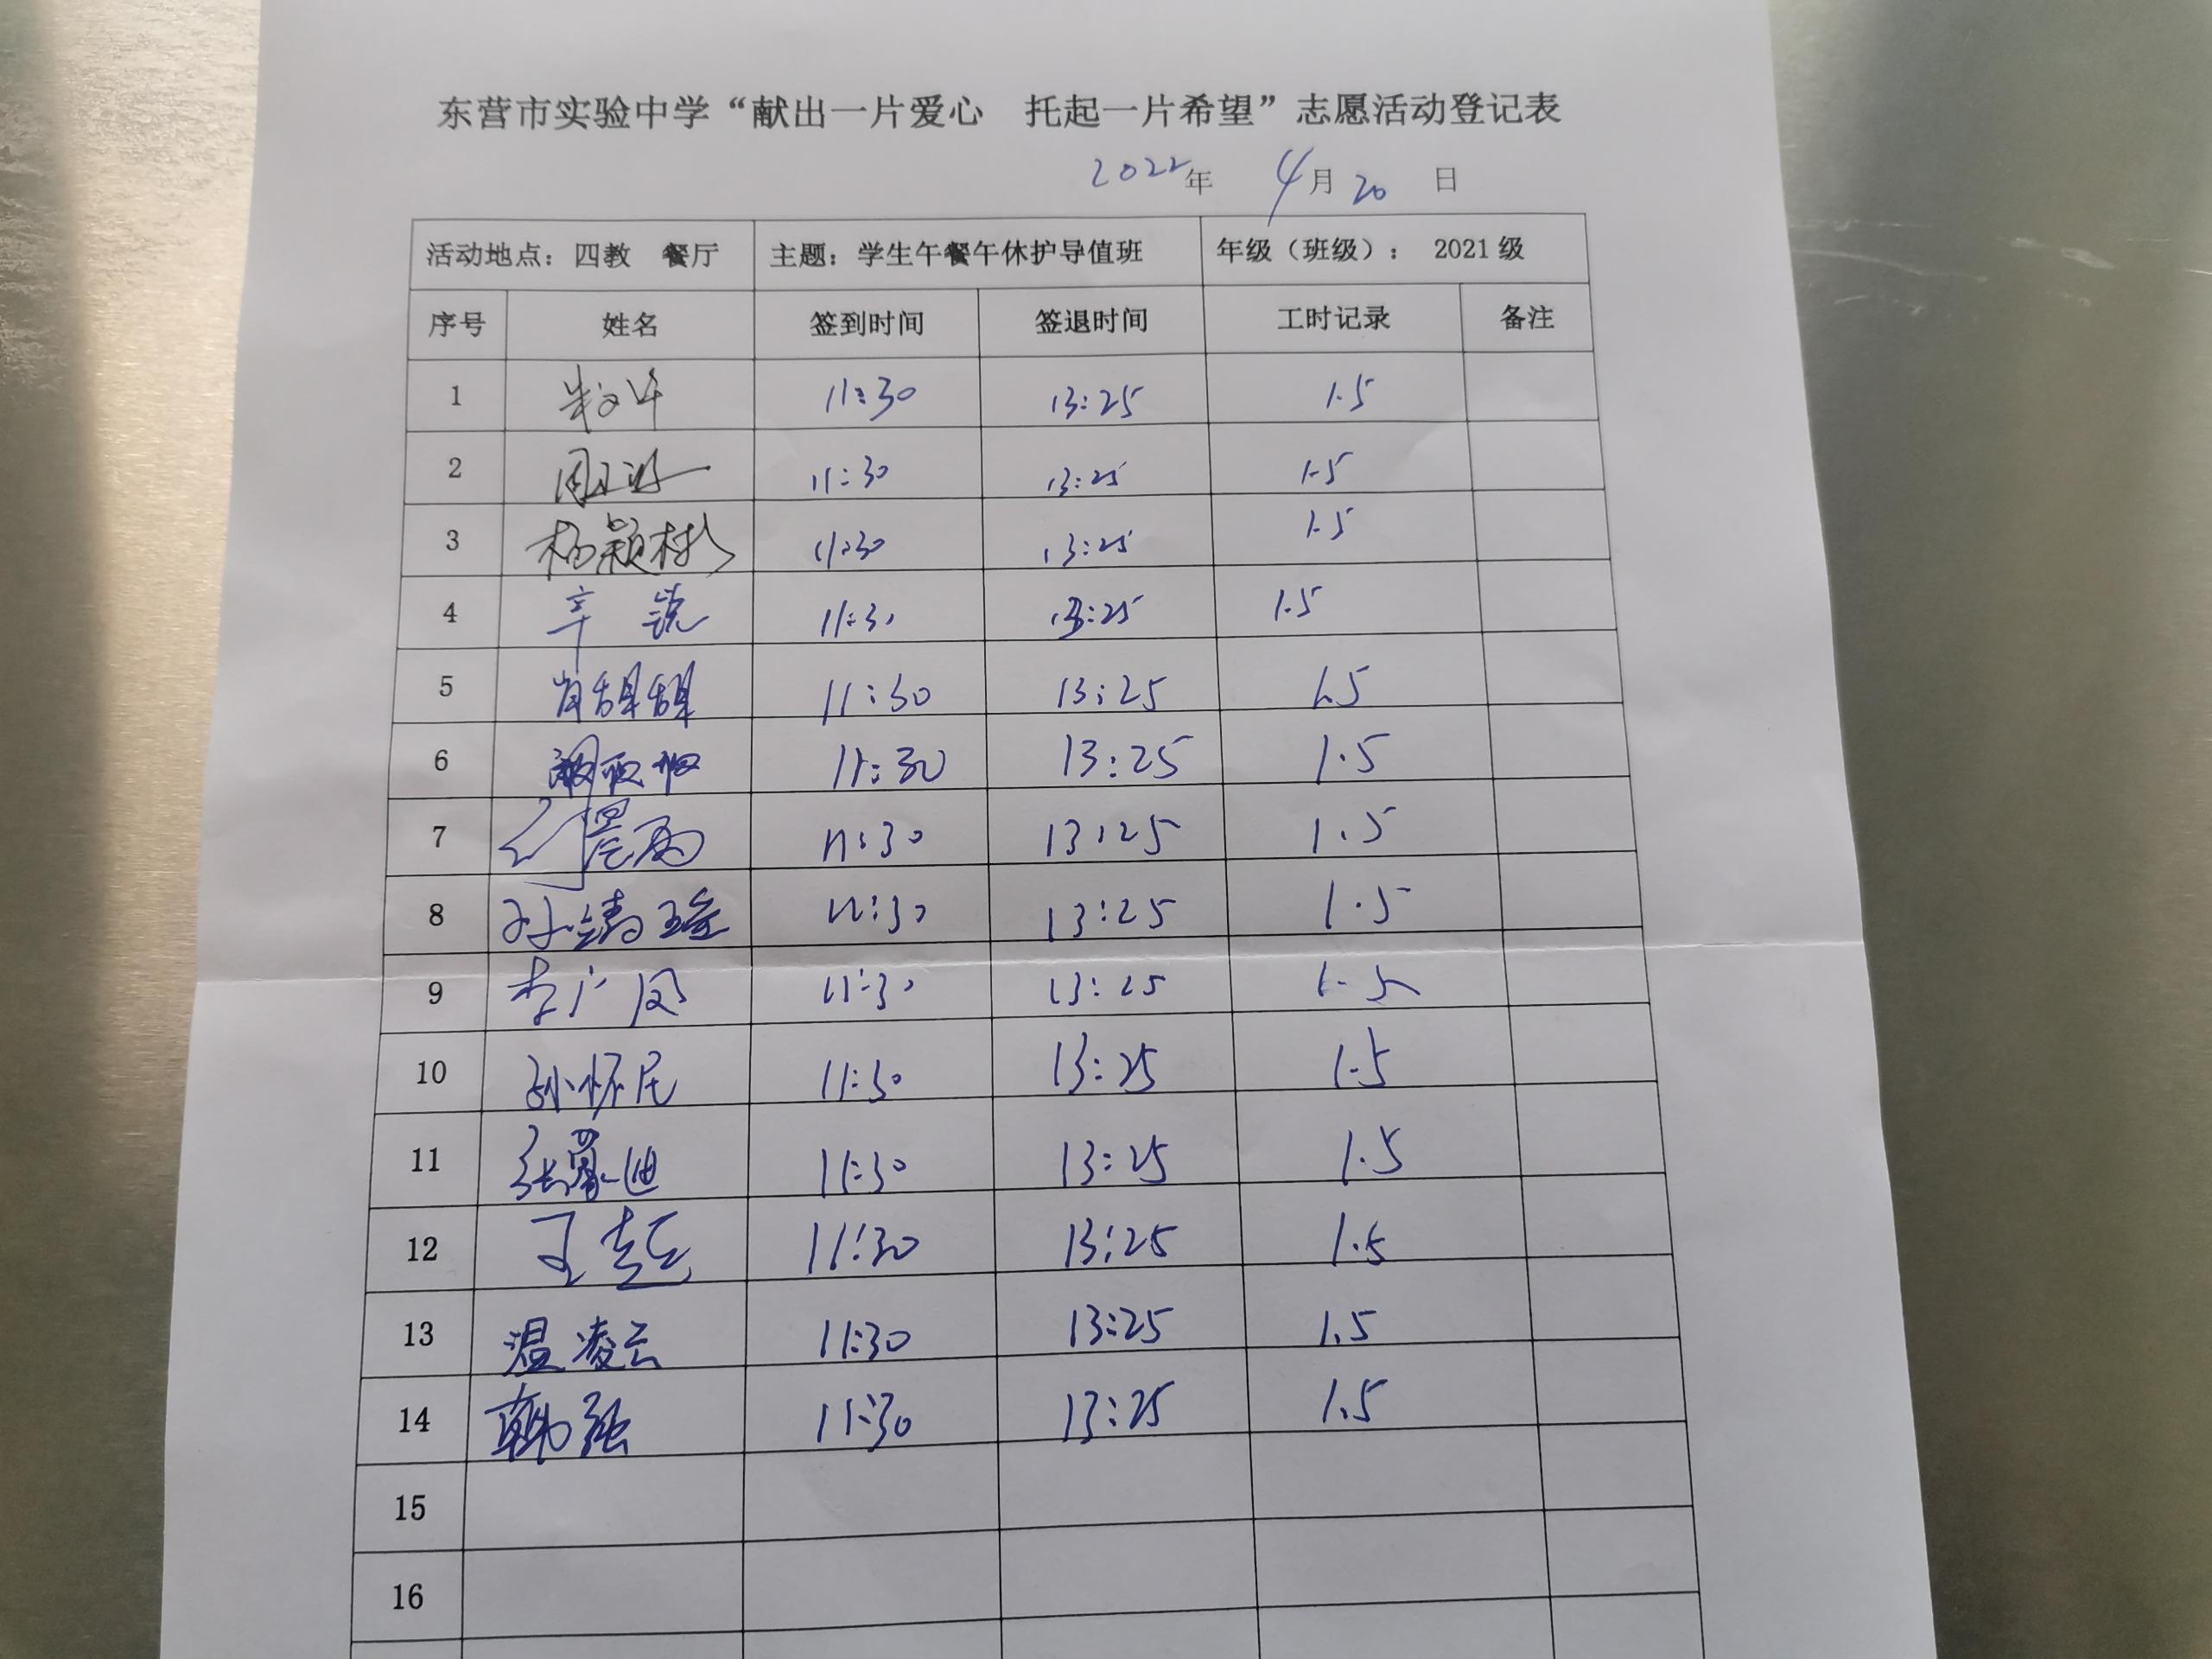 东营市实验中学“献出一片爱心 托起一片希望”志愿活动登记表
2022年 4月20日
活动地点：四教 餐厅 主题：学生午餐午休护导值班 年级（班级）： 2021级
序号 姓名 签到时间 签退时间 工时记录 备注
1 11:30 13:25 1.5
2 11:30 13:25 1.5
3 杨颖彬 11:30 13:25 1.5
4 辛锐 11:30 13:25 1.5
5 11:30 13:25 1.5
6 11:30 13:25 1.5
7 晨雨 11:30 13:25 1.5
8 孙靖瑶 11:30 13:25 1.5
9 李广凤 11:30 13:25 1.5
10 孙怀民 11:30 13:25 1.5
11 张蒙迪 11:30 13:25 1.5
12 王超 11:30 13:25 1.5
13 温凌云 11:30 13:25 1.5
14 韩强 11:30 13:25 1.5
15
16